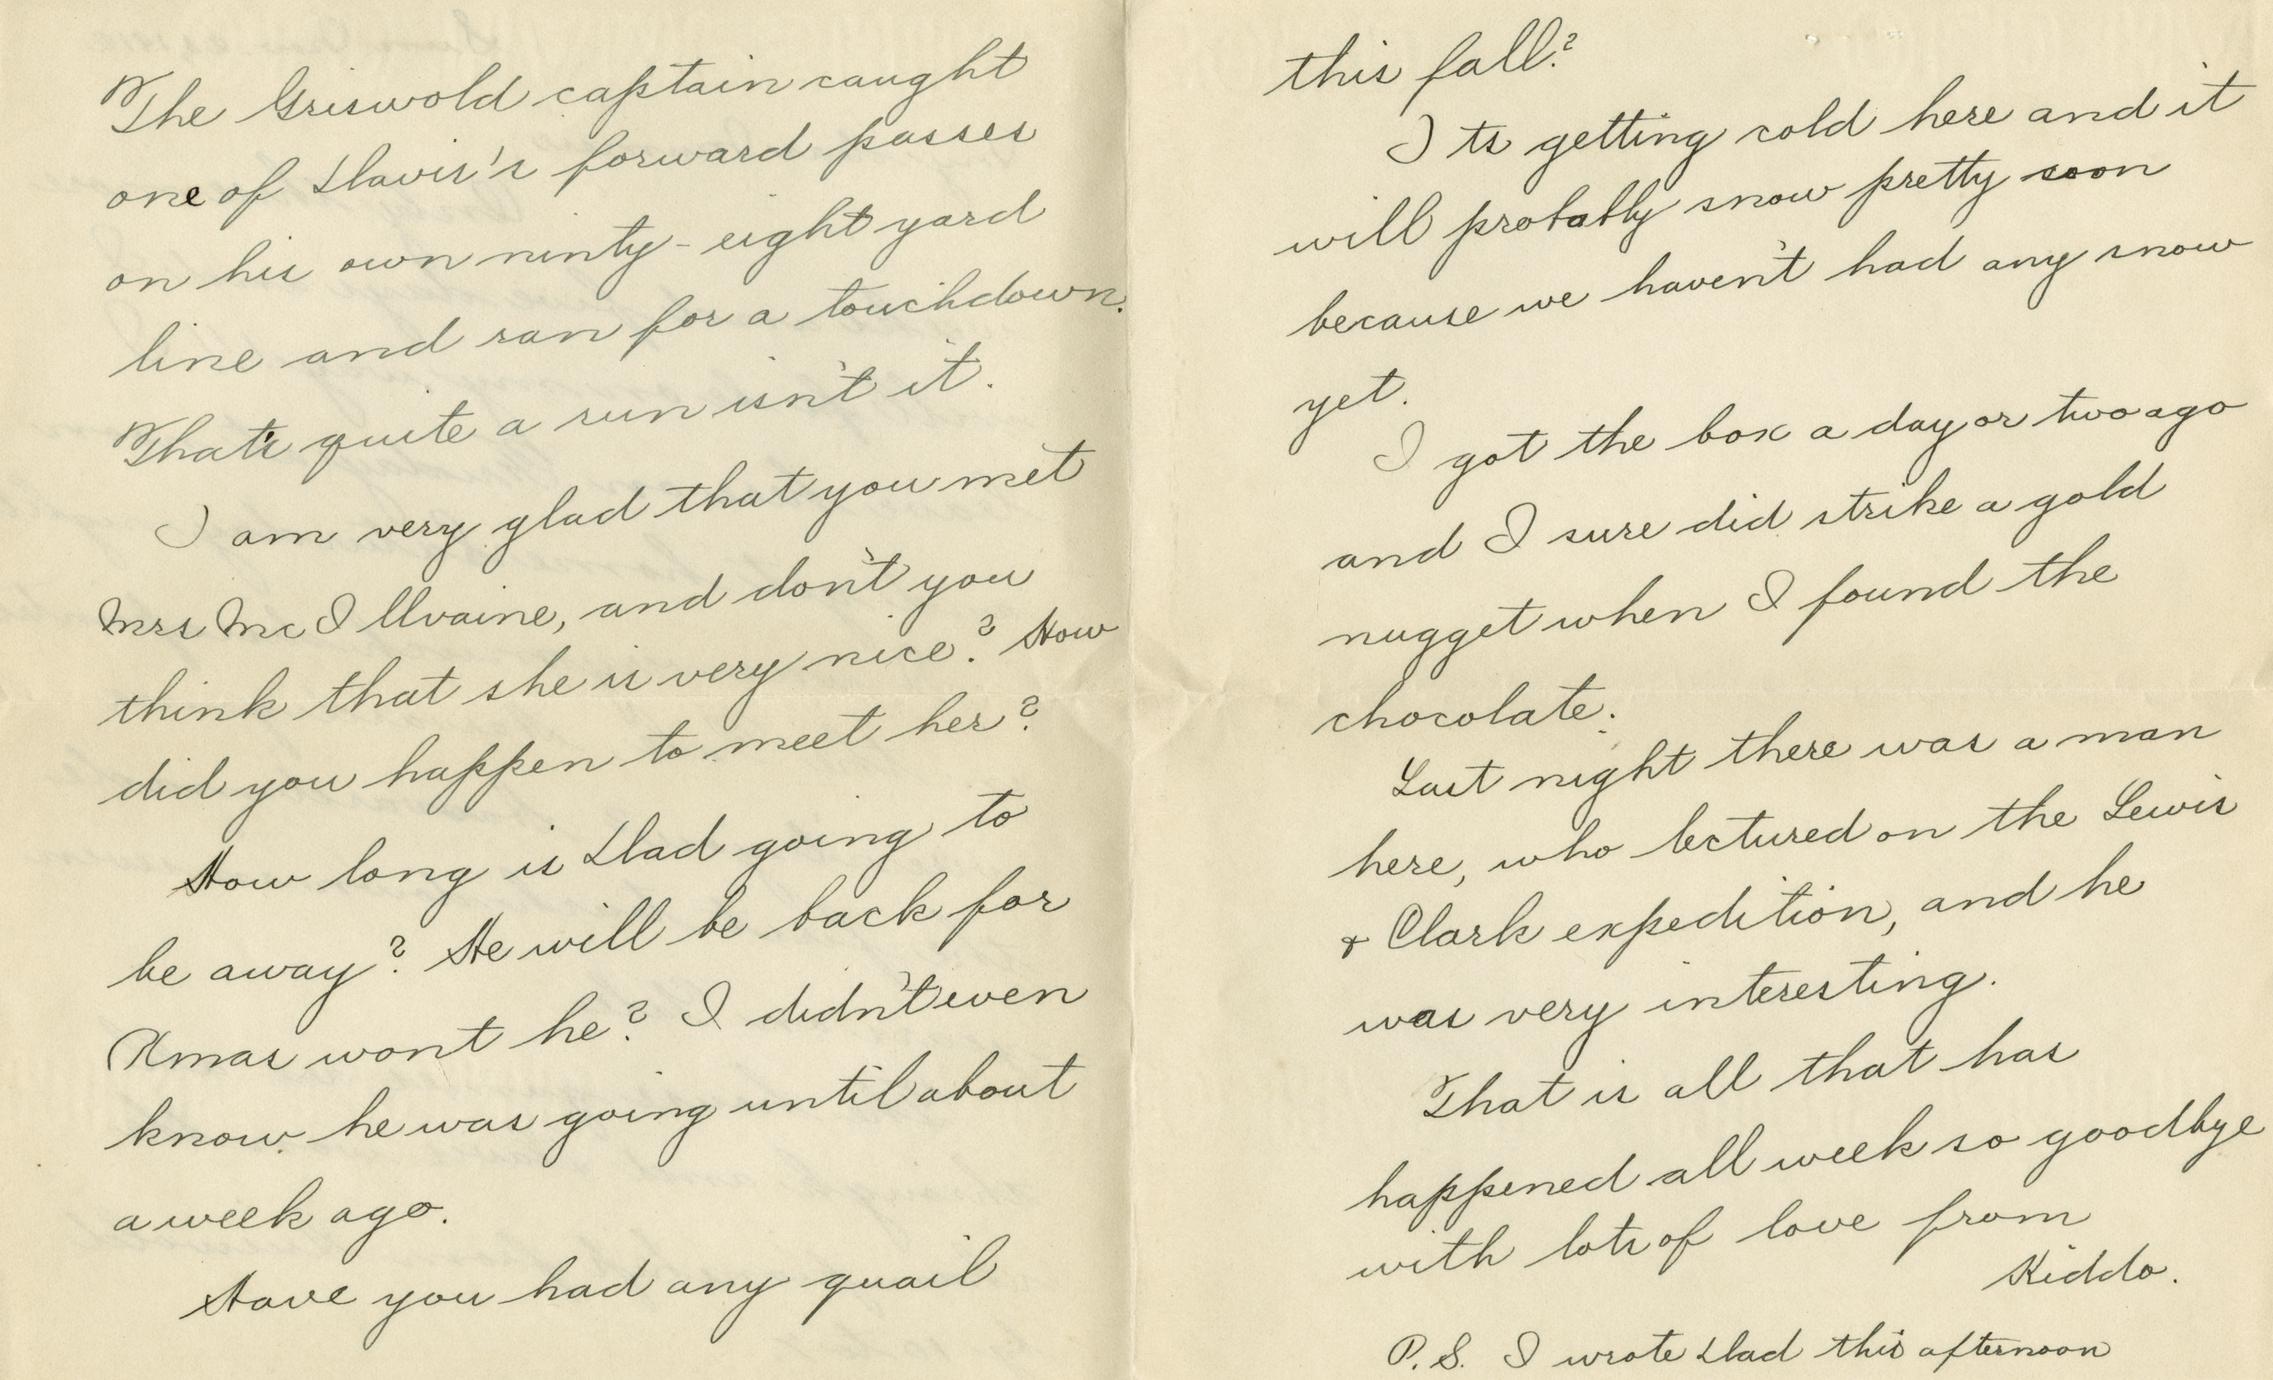 The Griswold captain caught
one of Davis's forward passes
on his own ninty-eight yard
line and ran for a touchdown.
That's quite a run isn't it.
I am very glad that you met
Mrs Mc Illvaine, and don't you
think that she is very nice? How
did you happen to meet her?
How long is Dad going to
be away? He will be back for
Xmas wont he? I didn't even
know he was going until about
a week ago.
Have you had any quail
this fall?
Its getting cold here and it
will probably snow pretty soon
because we haven't had any snow
yet.
I got the box a day or two ago
and I sure did strike a gold
nugget when I found the
chocolate.
Last night there was a man
here, who lectured on the Lewis
& Clark expedition, and he
was very interesting.
That is all that has
happened all week so goodbye
with lots of love from
Kiddo.
P.S. I wrote Dad this afternoon